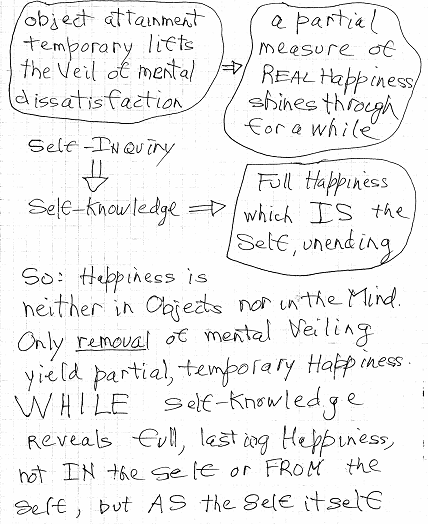 object attainment
temporary lifts
the Veil of mental
dissatisfaction
⇒
a partial
measure of
REAL Happiness
shines through
for a while
Self-Inquiry
⇓
Self-Knowledge ⇒
Full Happiness
which IS the
Self, unending
So: Happiness is
neither in Objects nor in the Mind.
Only removal of mental Veiling
yield partial, temporary Happiness.
WHILE Self-Knowledge
reveals full, lasting Happiness,
not IN the self or FROM the
self, but AS the Self itself